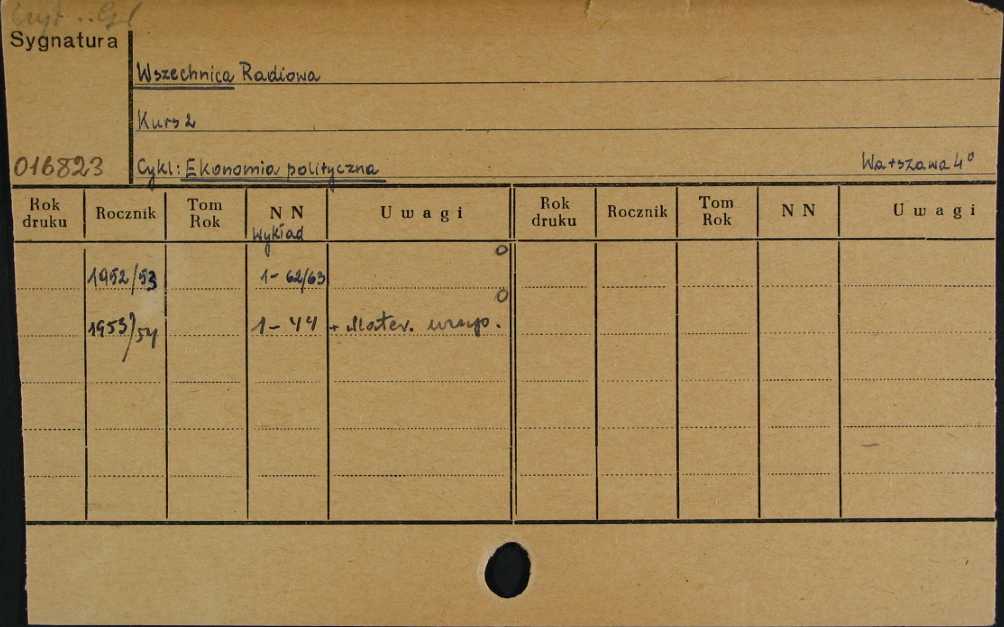 Sygnatura
Wszechnica Radiowa
Kurs 2
016823 Cykl: Ekonomia polityczna Warszawa 4°
Rok druku Rocznik Tom Rok NN Uwagi Rok druku Rocznik Tom Rok NN Uwagi
Wykład
1952/53 1-62/63 0
1953/54 1-44 + Mater. 0